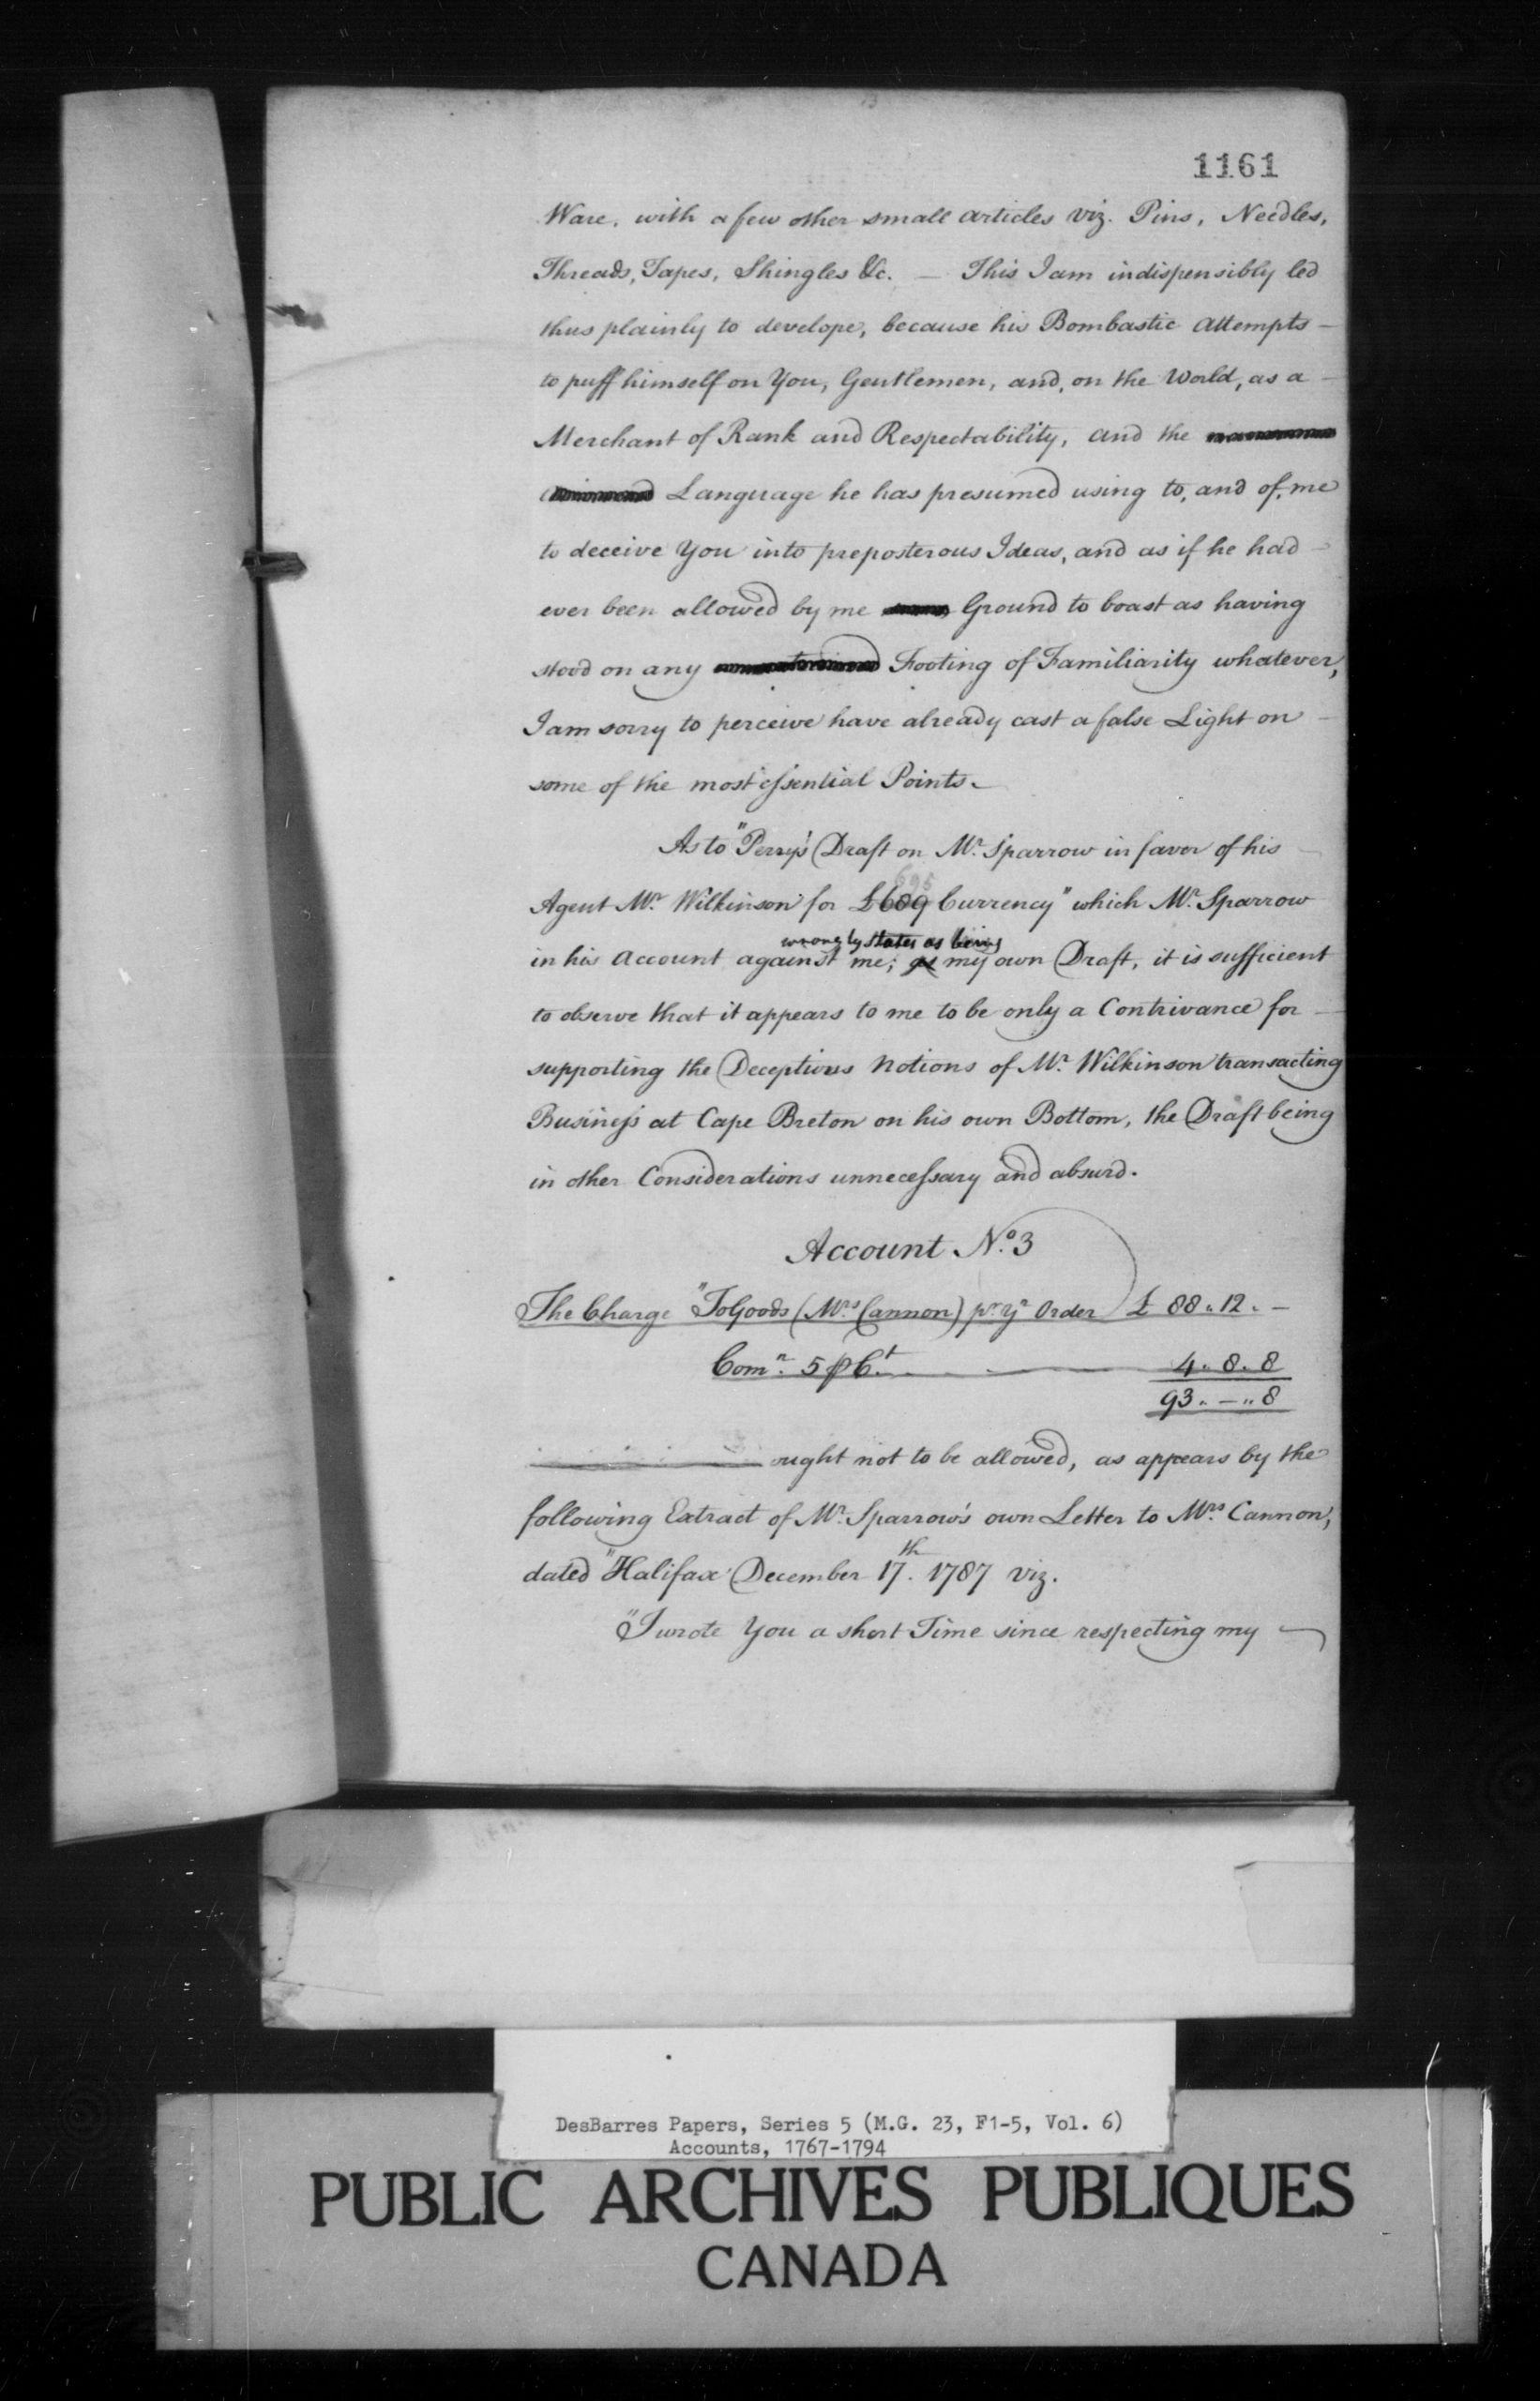 1161
Ware, with a few other small articles viz. Pins, Needles,
Threads, Tapes, Shingles &c. — This I am indispensibly led
thus plainly to develope, because his Bombastic attempts —
to puff himself on You, Gentlemen, and, on the World, as a —
Merchant of Rank and Respectability, and the
Language he has presumed using to, and of, me
to deceive You into preposterous Ideas, and as if he had —
ever been allowed by me Ground to boast as having
stood on any Footing of Familiarity whatever,
I am sorry to perceive have already cast a false Light on —
some of the most essential Points. —
As to "Perry's Draft on Mr. Sparrow in favor of his —
695
Agent Mr. Wilkinson for £689 Currency" which Mr. Sparrow
wrongly states as being
in his Account against me; as my own Draft, it is sufficient
to observe that it appears to me to be only a Contrivance for —
supporting the Deceptious Notions of Mr. Wilkinson transacting
Business at Cape Breton on his own Bottom, the Draft being
in other Considerations unnecessary and absurd.
Account No. 3
The Charge "To Goods (Mrs. Cannon) pr. yr. Order £ 88 " 12 " —
Comn. 5 p Ct. — 4 " 8 " 8
93 " — " 8
ought not to be allowed, as appears by the
following Extract of Mr. Sparrow's own Letter to Mrs. Cannon,
dated "Halifax December 17th. 1787 viz.
"I wrote You a short Time since respecting my —
DesBarres Papers, Series 5 (M.G. 23, F1-5, Vol. 6)
Accounts, 1767-1794
PUBLIC ARCHIVES PUBLIQUES
CANADA